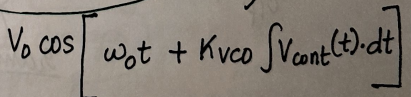 V₀ cos[ω₀t + Kvco ∫Vcont(t).dt]